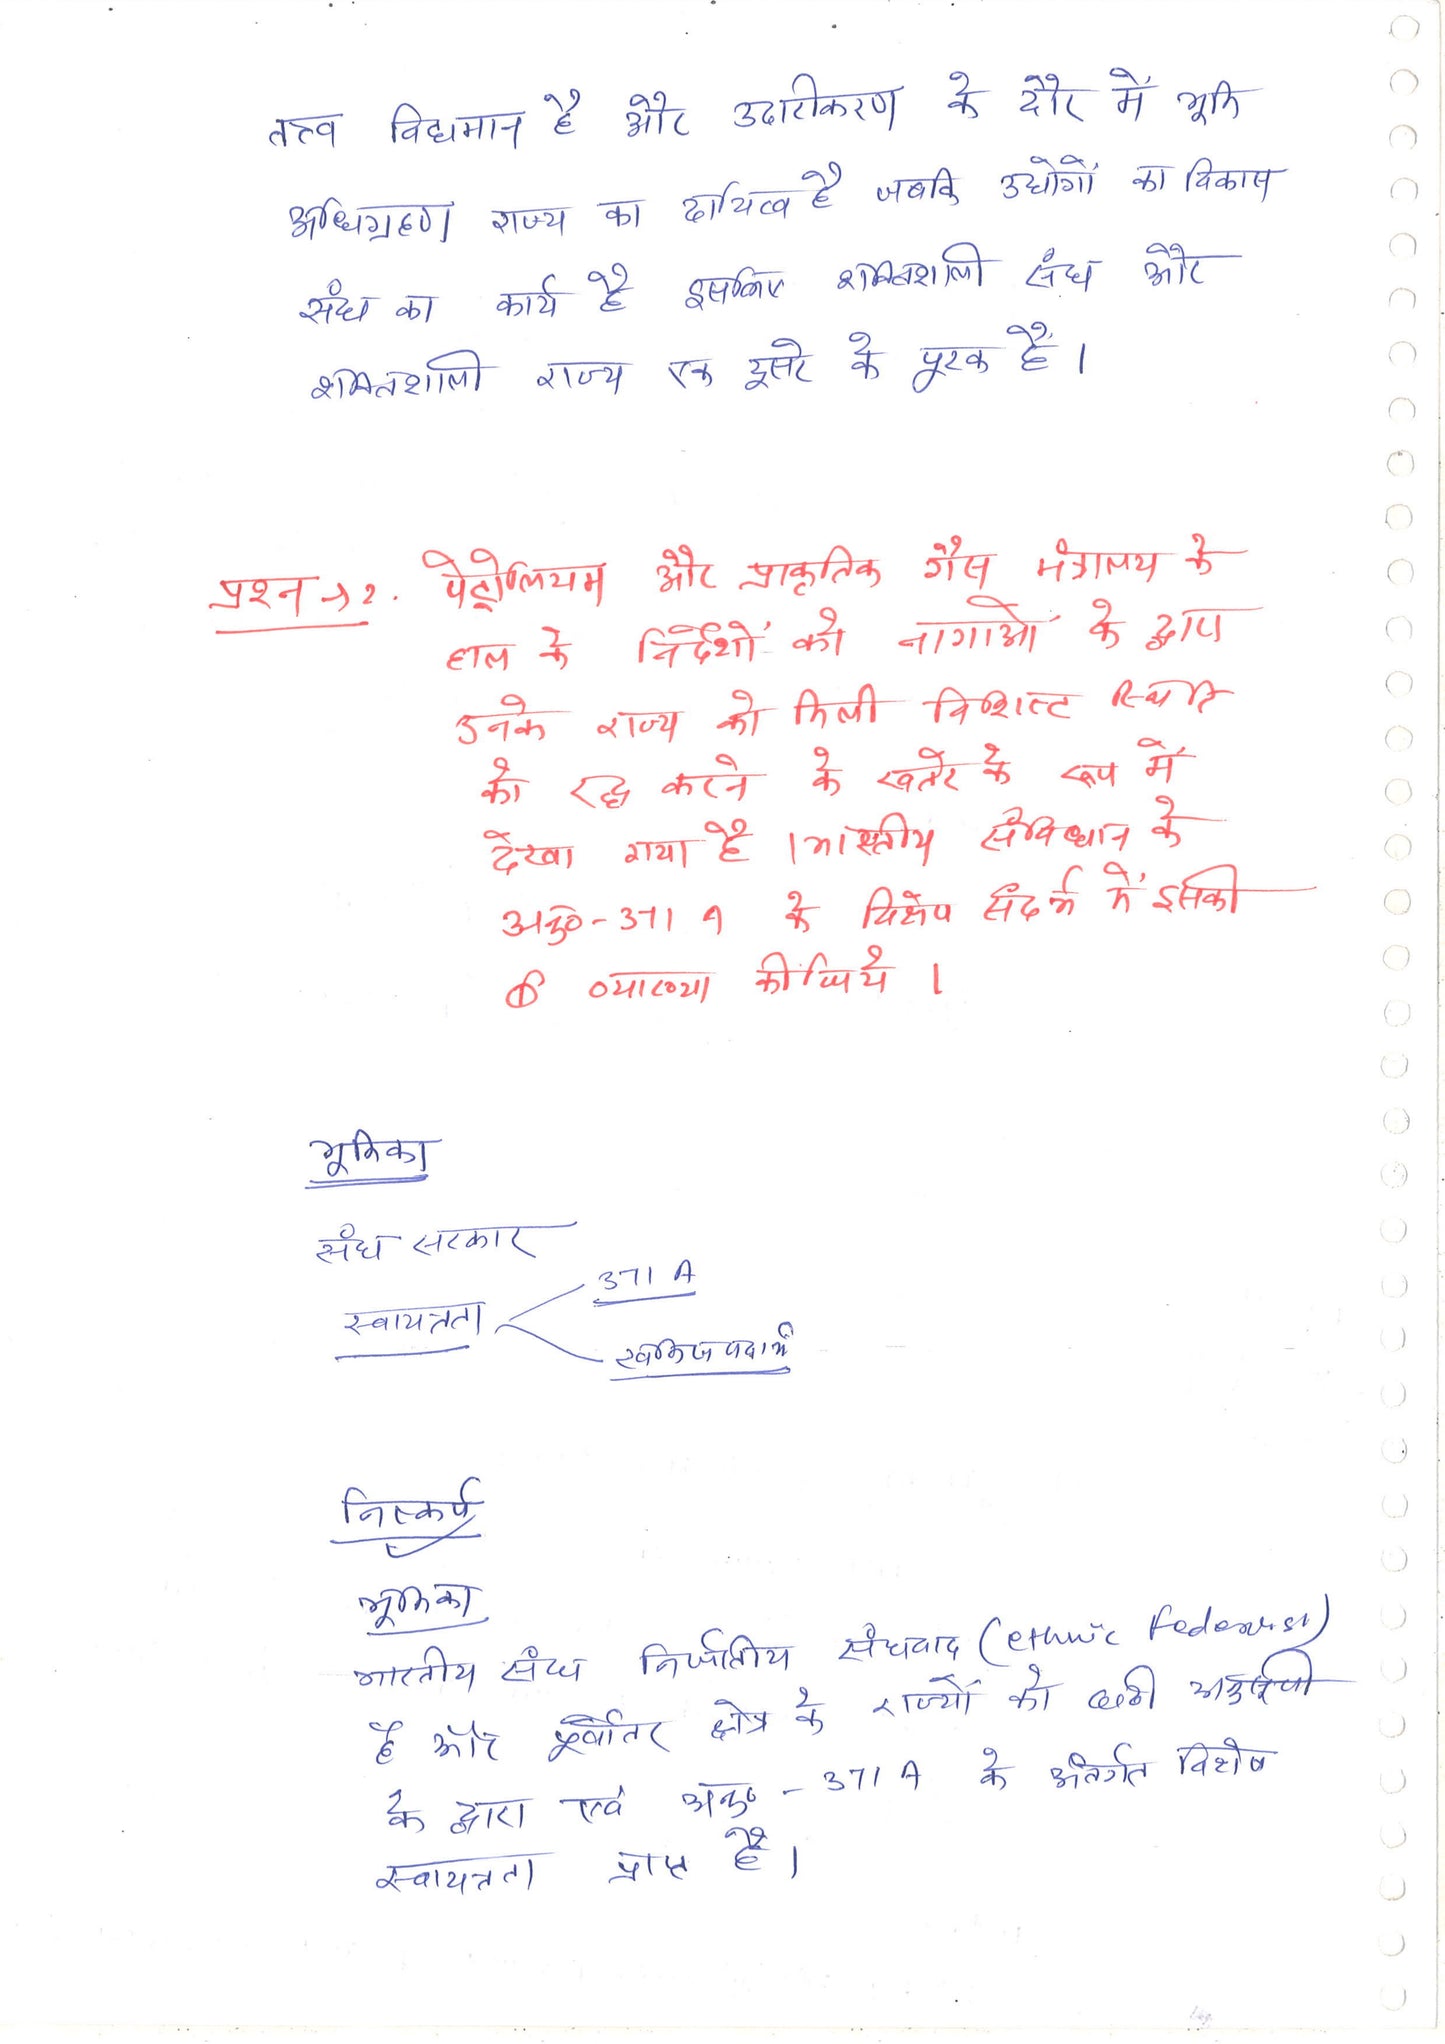 तत्व विद्यमान है और उदारीकरण के दौर में भूमि
अधिग्रहण राज्य का दायित्व है जबकि उद्योगों का विकास
संघ का कार्य है इसलिए शक्तिशाली संघ और
शक्तिशाली राज्य एक दूसरे के पूरक हैं।
प्रश्न → 2. पेट्रोलियम और प्राकृतिक गैस मंत्रालय के
हाल के निर्देशों को नागाओं के द्वारा
उनके राज्य को मिली विशिष्ट स्थिति
को रद्द करने के खतरे के रूप में
देखा गया है। भारतीय संविधान के
अनु० - 371 A के विशेष संदर्भ में इसकी
व्याख्या कीजिये।
भूमिका
संघ सरकार
371 A
स्वायत्रता
खनिज पदार्थ
निस्कर्ष
भूमिका
भारतीय संघ निर्जातीय संघवाद (ethnic
है और पूर्वोतर क्षेत्र के राज्यों को छठी अनुसूची
के द्वारा एवं अनु० - 371 A के अंतर्गत विशेष
स्वायत्रता प्राप्त है।